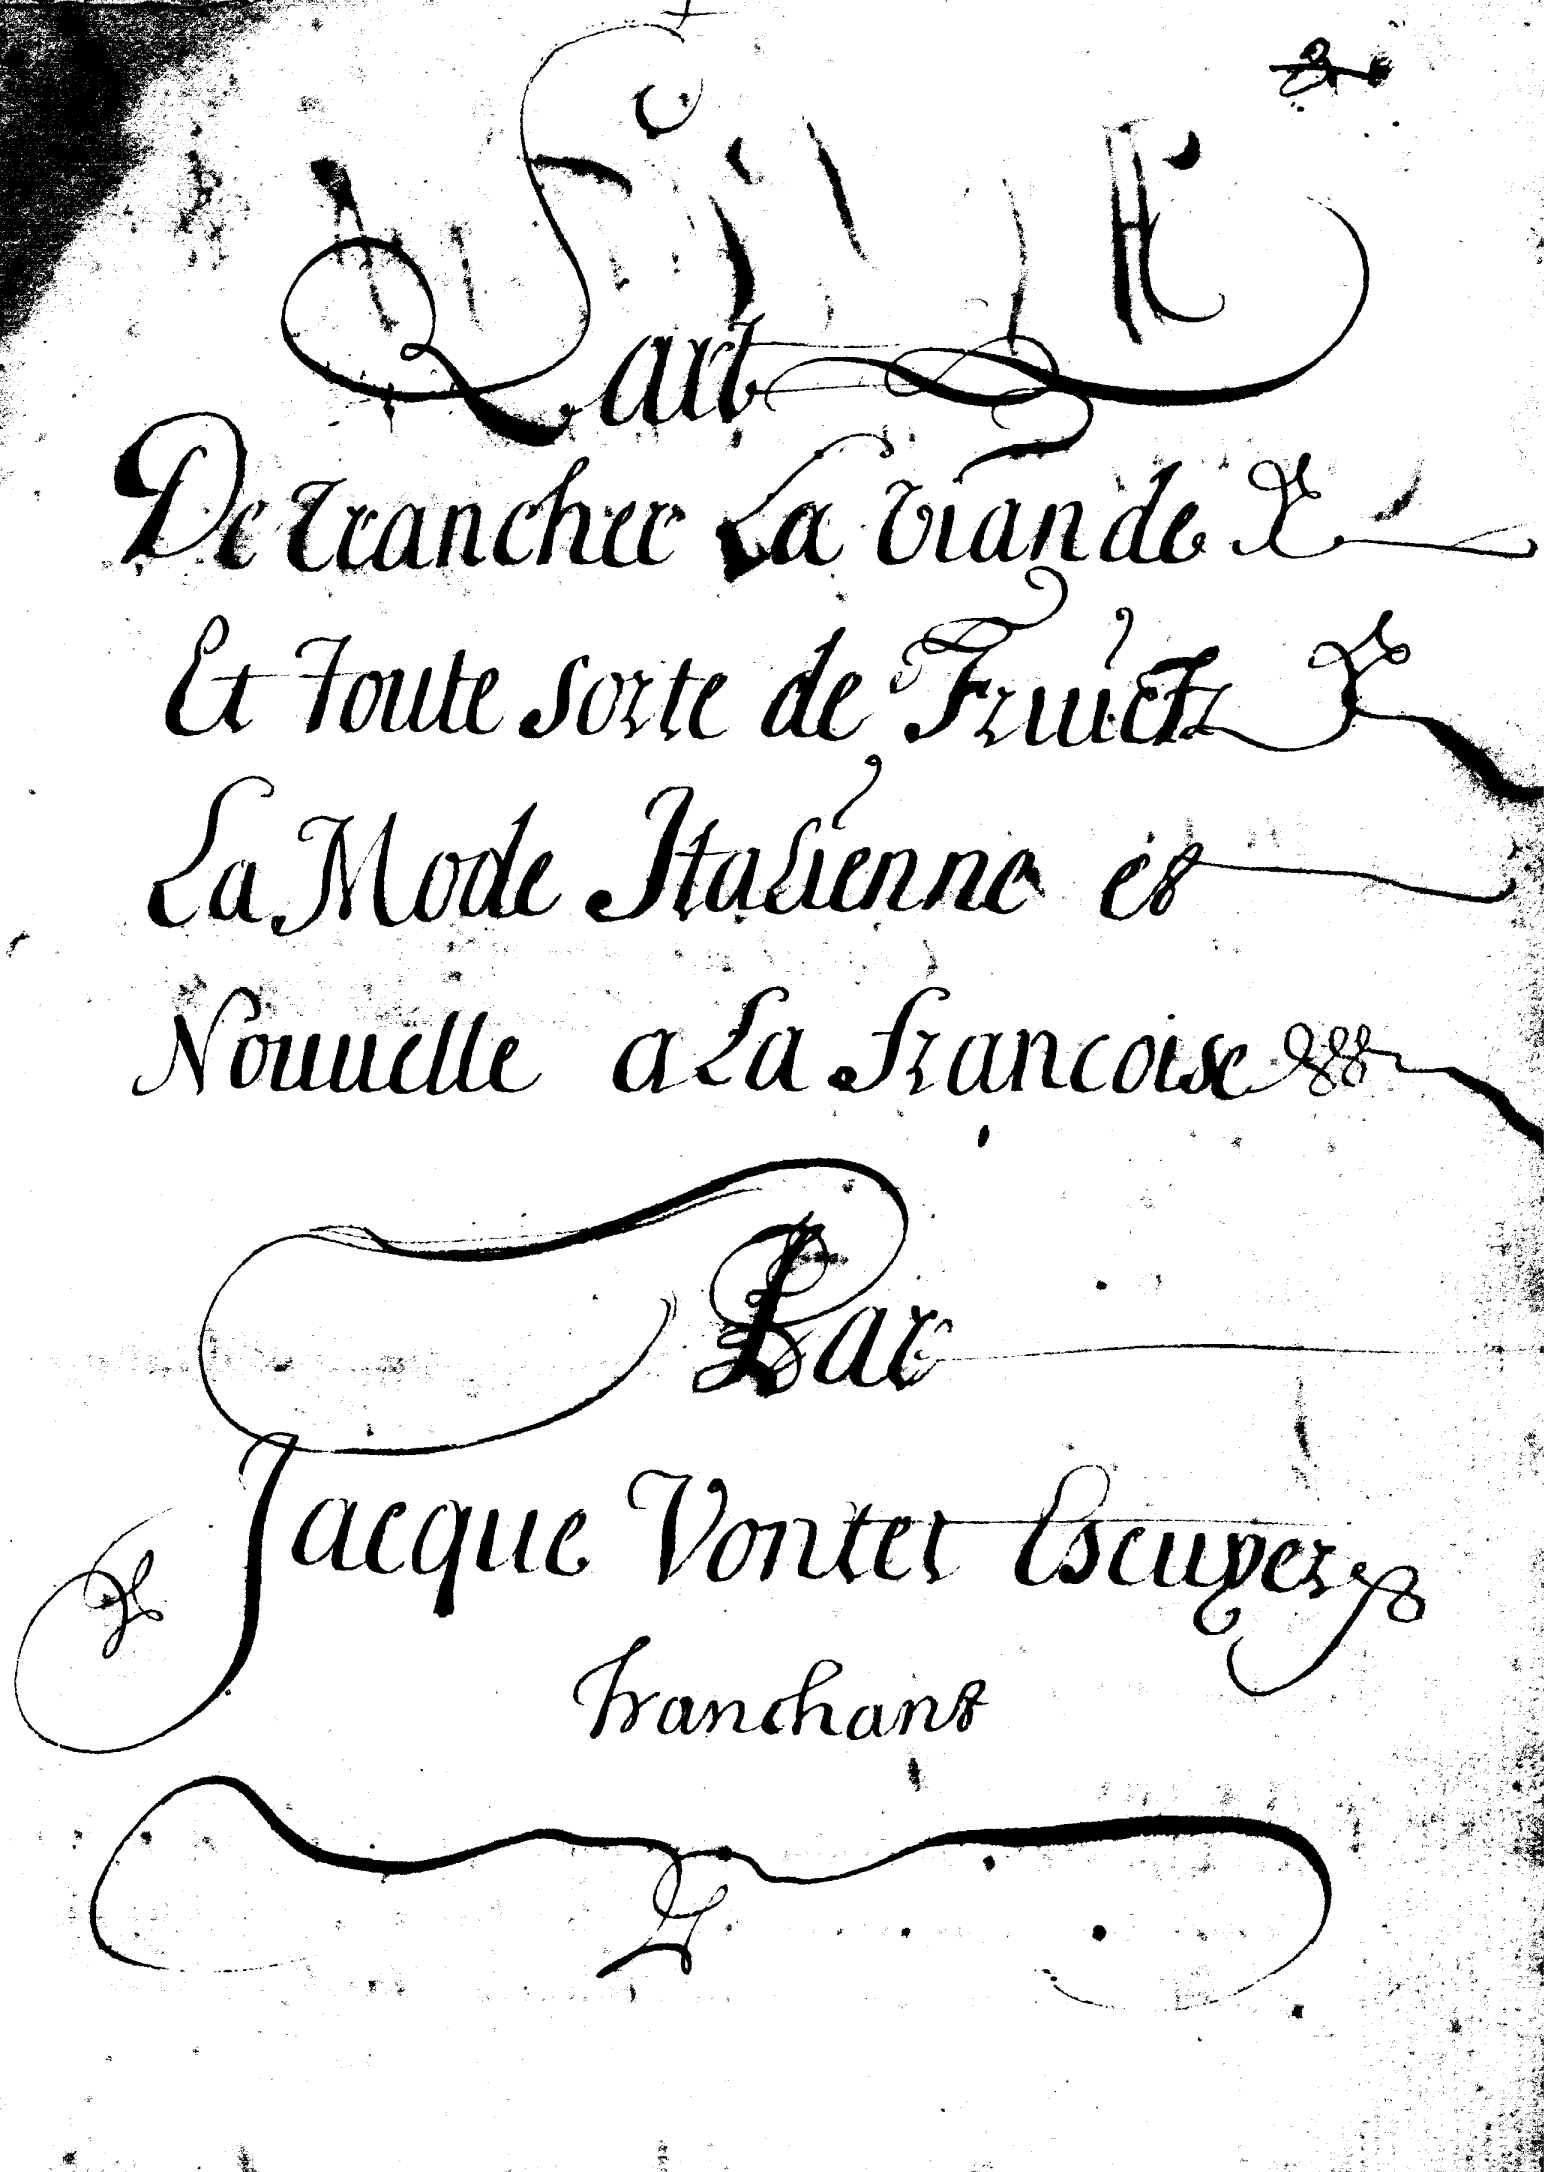 Lart
De trancher La viande
Et toute sorte de Fruictz
La Mode Italienne et
Nouuelle a La francoise
Par
Jacque Vontet Escuyer
tranchant